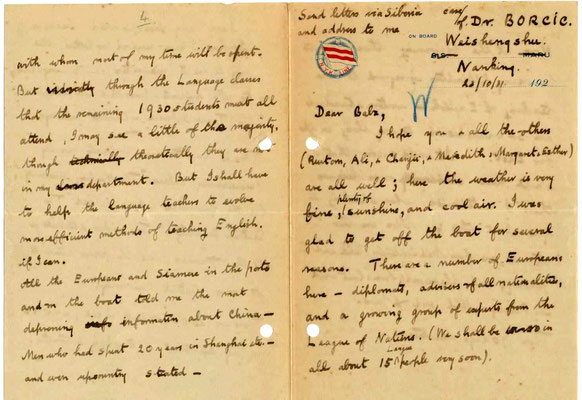 4
with whom most of my time will be spent.
But through the Language classes
that the remaining 1930 students must all
attend, I may see a little of the majority,
though theoretically they are not
in my department. But I shall have
to help the language teachers to evolve
more efficient methods of teaching English.
if I can.
All the Europeans and Siamese in the ports
and on the boat told me the most
depressing information about China —
Men who had spent 20 years in Shanghai etc. —
and even upcountry stated —
Send letters via Siberia
and address to me
care of Dr. BORCIC.
ON BOARD
Weishengshu.
MARU
Nanking.
23/10/31. 192
Dear Balz,
I hope you & all the others
Meredith, Margaret, Esther)
are all well; here the weather is very
fine, plenty of sunshine, and cool air. I was
glad to get off the boat for several
reasons. There are a number of Europeans
here — diplomats, advisers of all nationalities,
and a growing group of experts from the
League of Nations. (We shall be in
all about 15 League people very soon).